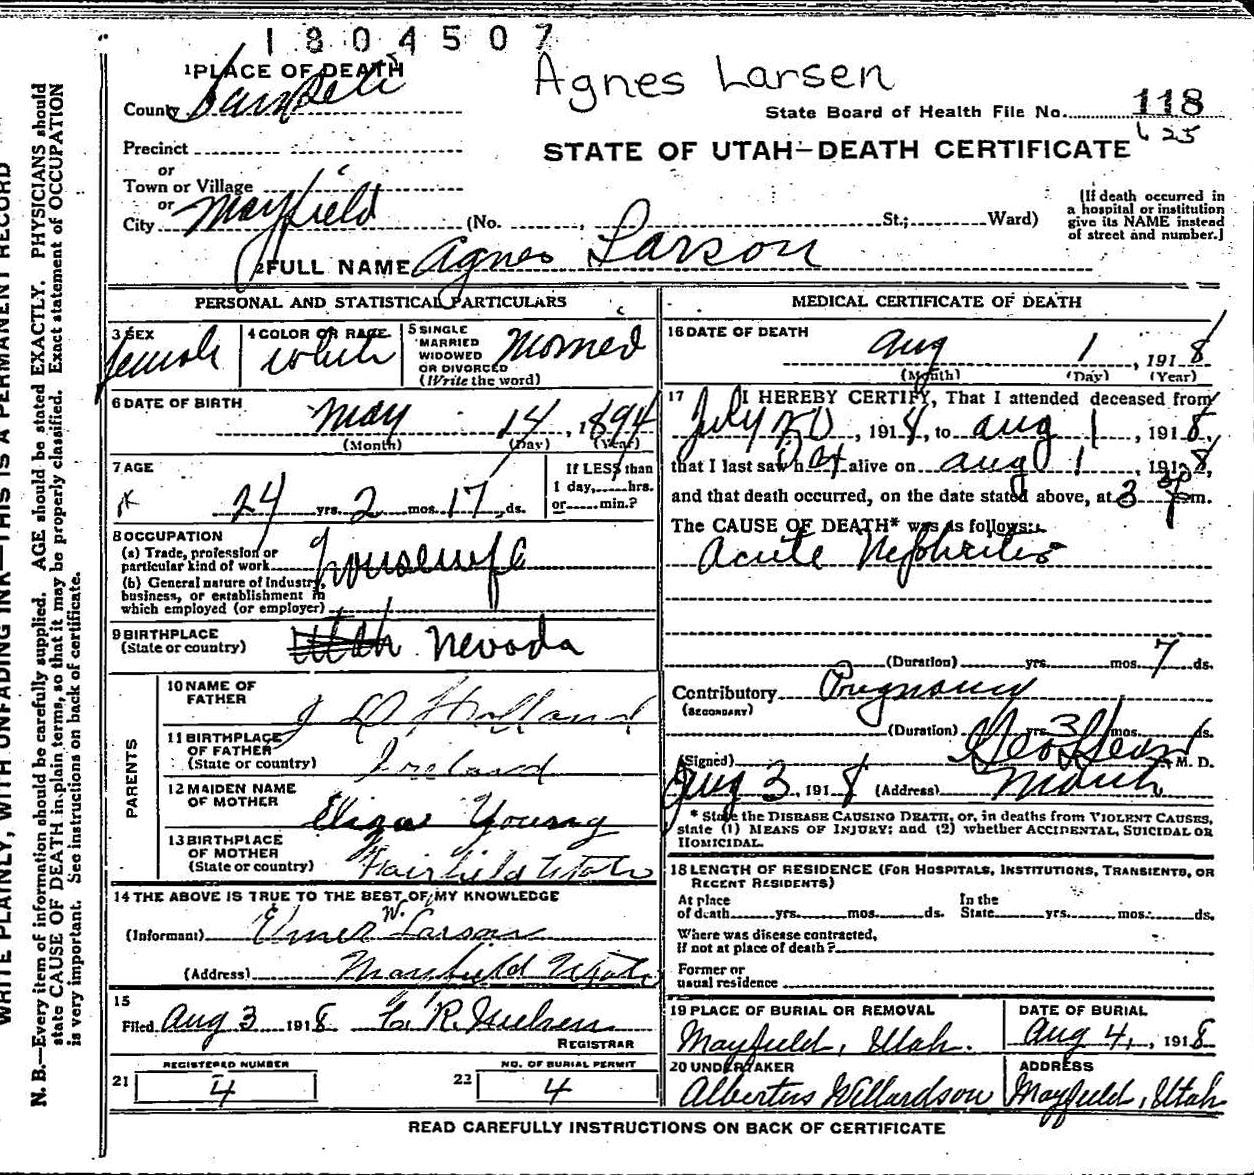 1804507
Agnes Larsen
1 PLACE OF DEATH
County Sanpete
State Board of Health File No. 118
625
Precinct
or
Town or Village
or
City Mayfield (No. , St.; Ward)
STATE OF UTAH—DEATH CERTIFICATE
[If death occurred in
a hospital or institution
give its NAME instead
of street and number.]
2 FULL NAME Agnes Larson
PERSONAL AND STATISTICAL PARTICULARS
3 SEX
female
4 COLOR OR RACE
white
5 SINGLE
MARRIED
WIDOWED
OR DIVORCED
(Write the word)
Married
6 DATE OF BIRTH
May 14, 1894
(Month) (Day) (Year)
7 AGE
24 yrs. 2 mos. 17 ds.
If LESS than
1 day, hrs.
or min.?
8 OCCUPATION
(a) Trade, profession or
particular kind of work housewife
(b) General nature of Industry,
business, or establishment in
which employed (or employer)
9 BIRTHPLACE
(State or country) Utah Nevada
PARENTS
10 NAME OF
FATHER
J D Holland
11 BIRTHPLACE
OF FATHER
(State or country) Ireland
12 MAIDEN NAME
OF MOTHER
Eliza Young
13 BIRTHPLACE
OF MOTHER
(State or country) Fairfield Utah
14 THE ABOVE IS TRUE TO THE BEST OF MY KNOWLEDGE
(Informant) Elmer W. Larson
(Address) Mayfield Utah
15
Filed Aug 3 1918 R. Nielsen
REGISTRAR
REGISTERED NUMBER
21 4
NO. OF BURIAL PERMIT
22 4
MEDICAL CERTIFICATE OF DEATH
16 DATE OF DEATH
Aug 1, 1918
(Month) (Day) (Year)
17 I HEREBY CERTIFY, That I attended deceased from
July 30, 1918, to Aug 1, 1918,
that I last saw her alive on Aug 1, 1918,
and that death occurred, on the date stated above, at 3 30 Pm.
The CAUSE OF DEATH* was as follows:
Acute Nephritis
(Duration) yrs. mos. 7 ds.
Contributory Pregnancy
(SECONDARY)
(Duration) yrs. 3 mos. ds.
(Signed) M. D.
Aug 3, 1918 (Address)
* State the DISEASE CAUSING DEATH, or, in deaths from VIOLENT CAUSES,
state (1) MEANS OF INJURY; and (2) whether ACCIDENTAL, SUICIDAL OR
HOMICIDAL.
18 LENGTH OF RESIDENCE (FOR HOSPITALS, INSTITUTIONS, TRANSIENTS, OR
RECENT RESIDENTS)
At place
of death yrs. mos. ds.
In the
State yrs. mos. ds.
Where was disease contracted,
If not at place of death?
Former or
usual residence
19 PLACE OF BURIAL OR REMOVAL
Mayfield, Utah.
DATE OF BURIAL
Aug 4, 1918
20 UNDERTAKER
Albertus Willardson
ADDRESS
Mayfield, Utah
READ CAREFULLY INSTRUCTIONS ON BACK OF CERTIFICATE
WRITE PLAINLY, WITH UNFADING INK—THIS IS A PERMANENT RECORD
N. B.—Every item of information should be carefully supplied. AGE should be stated EXACTLY. PHYSICIANS should
state CAUSE OF DEATH in plain terms, so that it may be properly classified. Exact statement of OCCUPATION
is very important. See instructions on back of certificate.